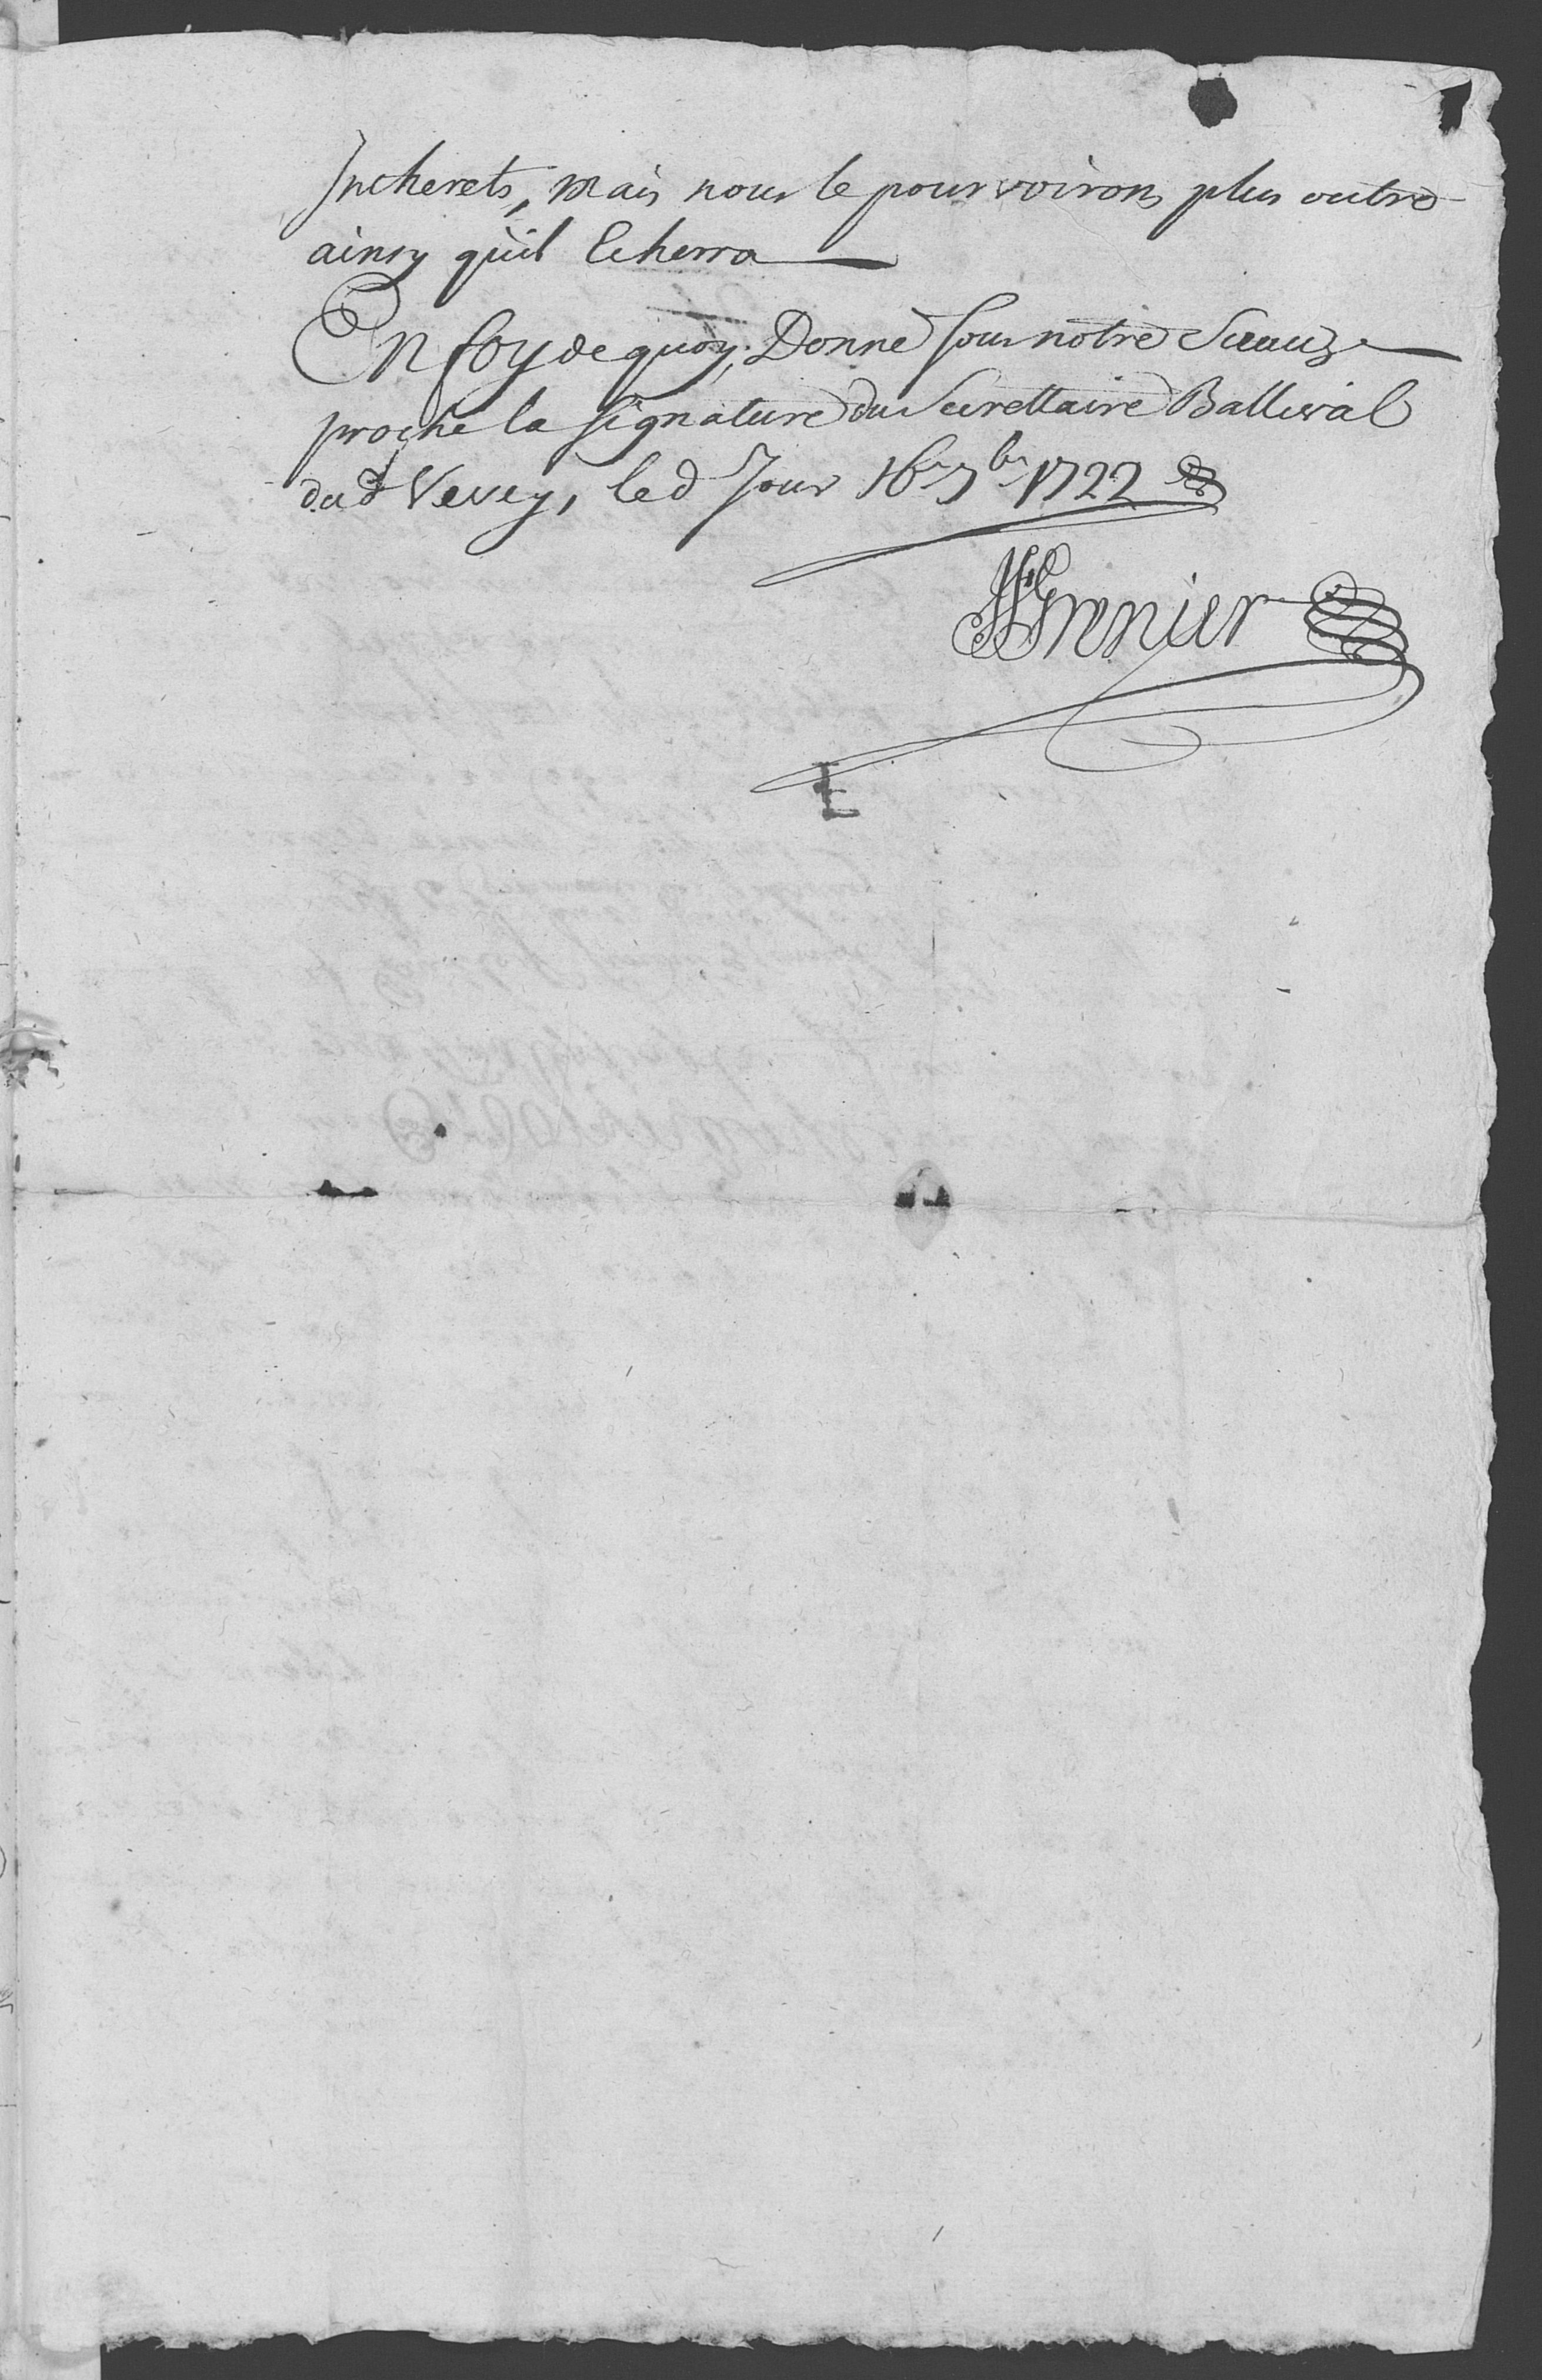 Incherets, mais nous le pourvoirons plus outre
ainsy qu'il Echerra
En foy de quoy, Donné sous notre Sceauz
proche la signature du Secrettaire Ballival
dud Vevey, led Jour 16e 7bre 1722
Grenier